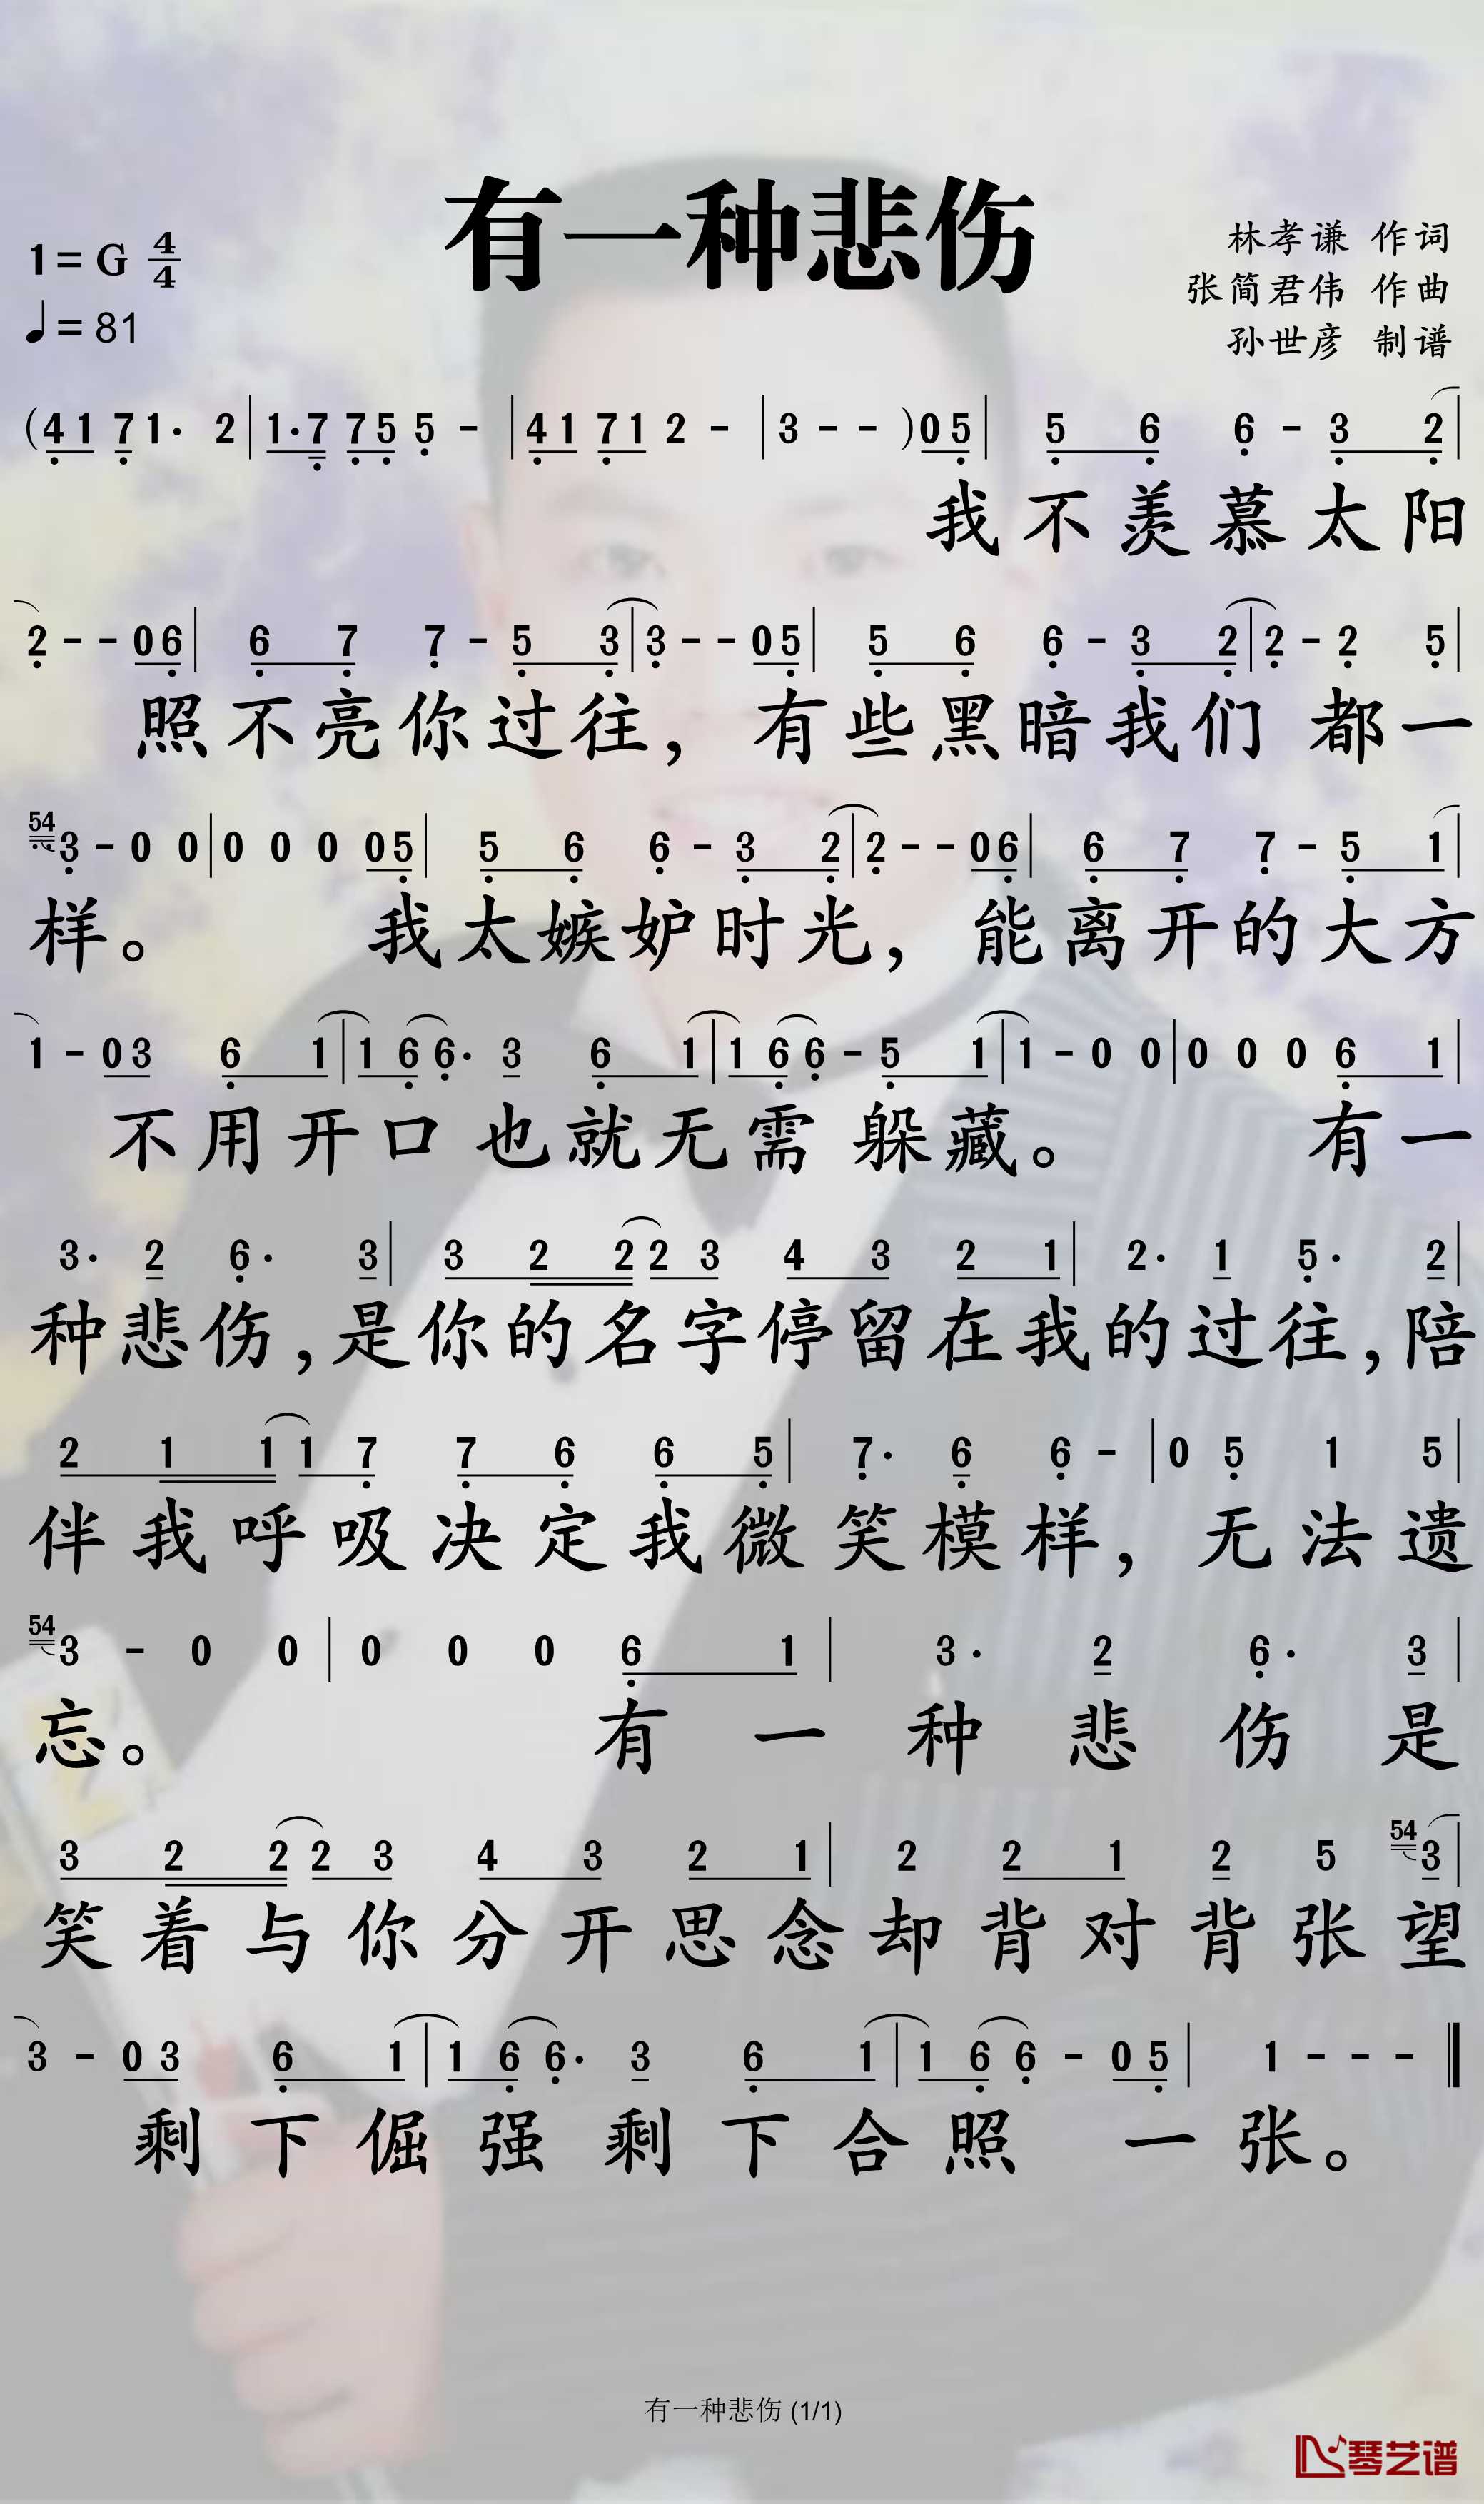 有一种悲伤
1=G 4/4
♩=81
林孝谦 作词
张简君伟 作曲
孙世彦 制谱
(4 1 7 1· 2 | 1·7 7 5 5 - | 4 1 7 1 2 - | 3 - - )0 5 | 5 6 6 - 3 2 |
我不羡慕太阳
2 - - 0 6 | 6 7 7 - 5 3 | 3 - - 0 5 | 5 6 6 - 3 2 | 2 - 2 5 |
照不亮你过往，有些黑暗我们都一
54 3 - 0 0 | 0 0 0 0 5 | 5 6 6 - 3 2 | 2 - - 0 6 | 6 7 7 - 5 1 |
样。我太嫉妒时光，能离开的大方
1 - 0 3 6 1 | 1 6 6· 3 6 1 | 1 6 6 - 5 1 | 1 - 0 0 | 0 0 0 6 1 |
不用开口也就无需躲藏。有一
3· 2 6· 3 | 3 2 2 2 3 4 3 2 1 | 2· 1 5· 2 |
种悲伤，是你的名字停留在我的过往，陪
2 1 1 1 7 7 6 6 5 | 7· 6 6 - | 0 5 1 5 |
伴我呼吸决定我微笑模样，无法遗
54 3 - 0 0 | 0 0 0 6 1 | 3· 2 6· 3 |
忘。有一种悲伤是
3 2 2 2 3 4 3 2 1 | 2 2 1 2 5 54 3 |
笑着与你分开思念却背对背张望
3 - 0 3 6 1 | 1 6 6· 3 6 1 | 1 6 6 - 0 5 | 1 - - - ‖
剩下倔强剩下合照一张。
有一种悲伤 (1/1)
琴艺谱